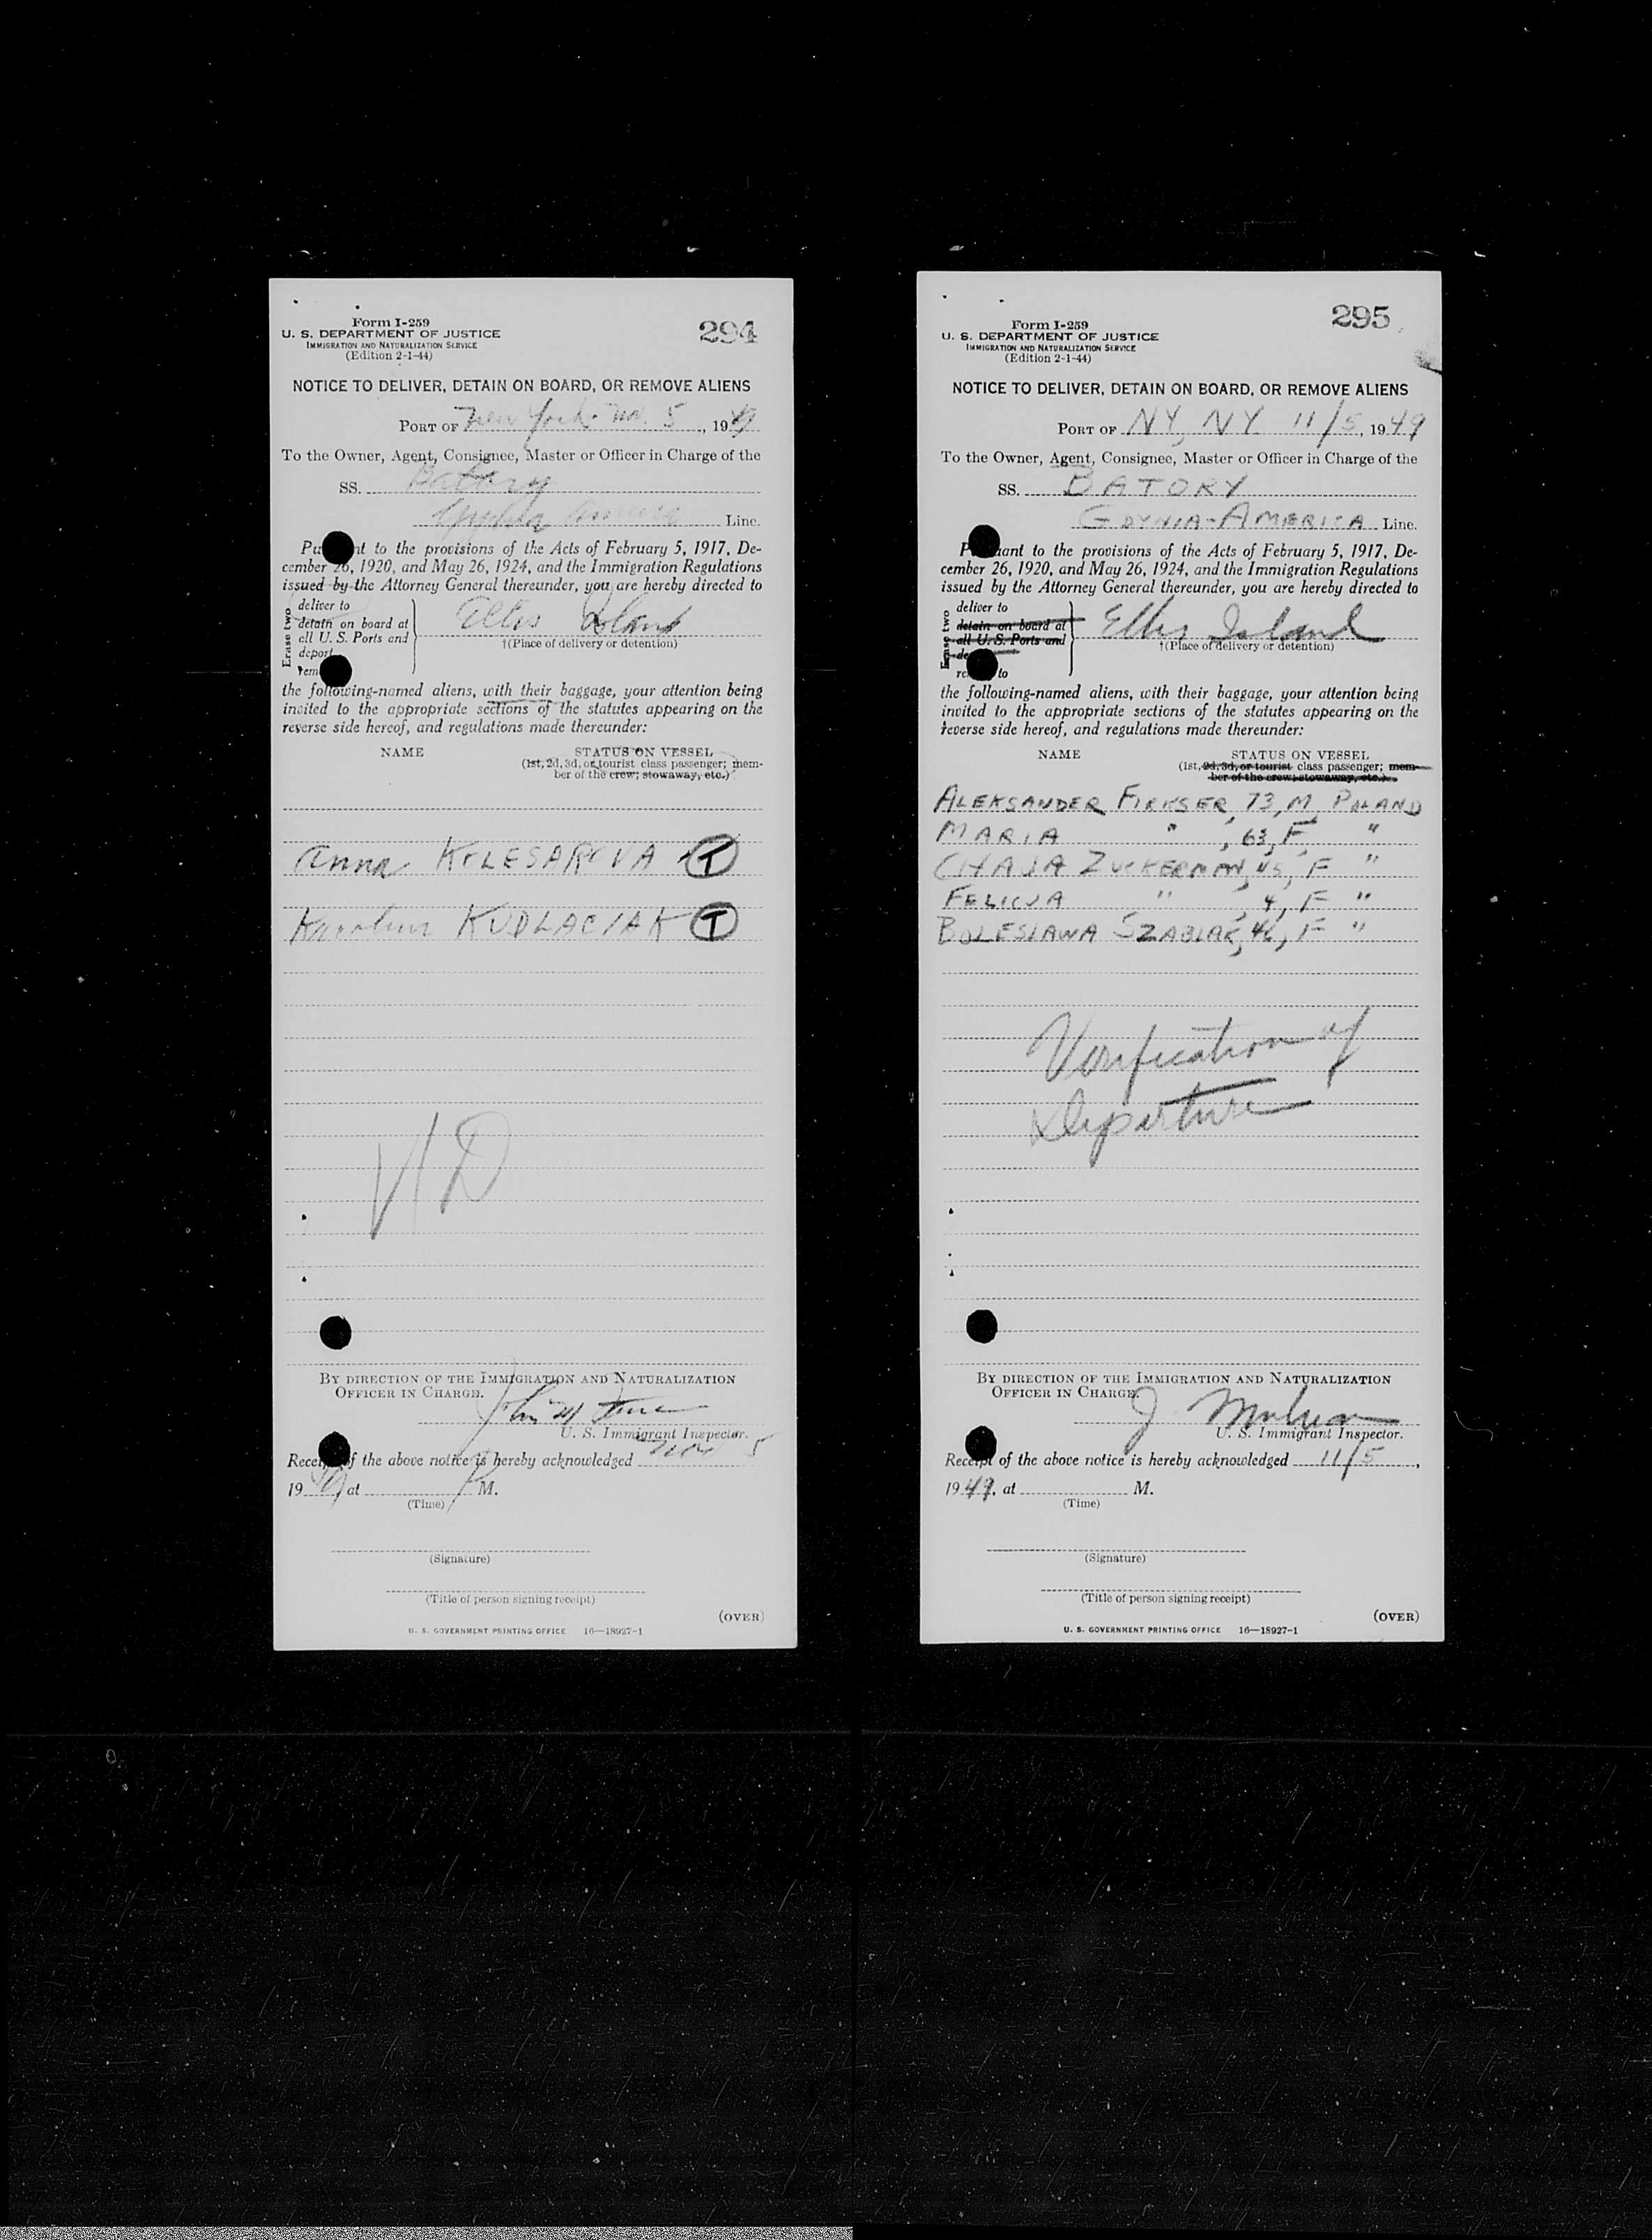 Form I-259
U. S. DEPARTMENT OF JUSTICE
IMMIGRATION AND NATURALIZATION SERVICE
(Edition 2-1-44)
294
NOTICE TO DELIVER, DETAIN ON BOARD, OR REMOVE ALIENS
PORT OF New York Nov. 5, 1949
To the Owner, Agent, Consignee, Master or Officer in Charge of the
SS. Batory
Line.
nt to the provisions of the Acts of February 5, 1917, De-
cember 26, 1920, and May 26, 1924, and the Immigration Regulations
issued by the Attorney General thereunder, you are hereby directed to
Erase two
deliver to
detain on board at
all U. S. Ports and
deport
rem
Ellis Island
†(Place of delivery or detention)
the following-named aliens, with their baggage, your attention being
invited to the appropriate sections of the statutes appearing on the
reverse side hereof, and regulations made thereunder:
NAME STATUS ON VESSEL
(1st, 2d, 3d, or tourist class passenger; mem-
ber of the crew; stowaway, etc.)
Anna KOLESAROVA T
KUDLACIAK T
VD
BY DIRECTION OF THE IMMIGRATION AND NATURALIZATION
OFFICER IN CHARGE.
John M
U. S. Immigrant Inspector.
Receipt of the above notice is hereby acknowledged Nov 5
1949, at M.
(Time)
(Signature)
(Title of person signing receipt)
(OVER)
U. S. GOVERNMENT PRINTING OFFICE 16—18927-1
Form I-259
U. S. DEPARTMENT OF JUSTICE
IMMIGRATION AND NATURALIZATION SERVICE
(Edition 2-1-44)
295
NOTICE TO DELIVER, DETAIN ON BOARD, OR REMOVE ALIENS
PORT OF NY, NY 11/5, 1949
To the Owner, Agent, Consignee, Master or Officer in Charge of the
SS. BATORY
GDYNIA-AMERICA Line.
P uant to the provisions of the Acts of February 5, 1917, De-
cember 26, 1920, and May 26, 1924, and the Immigration Regulations
issued by the Attorney General thereunder, you are hereby directed to
Erase two
deliver to
detain on board at
all U. S. Ports and
de
re to
Ellis Island
†(Place of delivery or detention)
the following-named aliens, with their baggage, your attention being
invited to the appropriate sections of the statutes appearing on the
reverse side hereof, and regulations made thereunder:
NAME STATUS ON VESSEL
(1st, 2d, 3d, or tourist class passenger; mem-
ber of the crew; stowaway, etc.)
ALEKSANDER FIRKSER, 73, M POLAND
MARIA " , 63, F, "
CHAJA ZUCKERMAN, 45, F "
FELICJA " , 4, F "
BOLESLAWA SZABLAK, 46, F "
Verification of
Departure
BY DIRECTION OF THE IMMIGRATION AND NATURALIZATION
OFFICER IN CHARGE.
J
U. S. Immigrant Inspector.
Receipt of the above notice is hereby acknowledged 11/5,
1949, at M.
(Time)
(Signature)
(Title of person signing receipt)
(OVER)
U. S. GOVERNMENT PRINTING OFFICE 16—18927-1